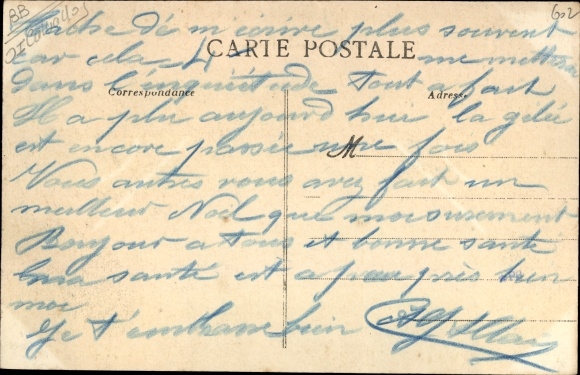 BB
602
Tache de m'écrire plus souvent
CARTE POSTALE
car cela me mettra
dans l'inquiétude tout a fait
Correspondance
Adresse
Il a plu aujourd hui la gelée
est encore passée une fois
M
Vous autres vous avez fait un
meilleur Noël que moi surement
Bonjour a tous et bonne santé
ma santé est a peu près bien
moi
Je t'embrasse bien